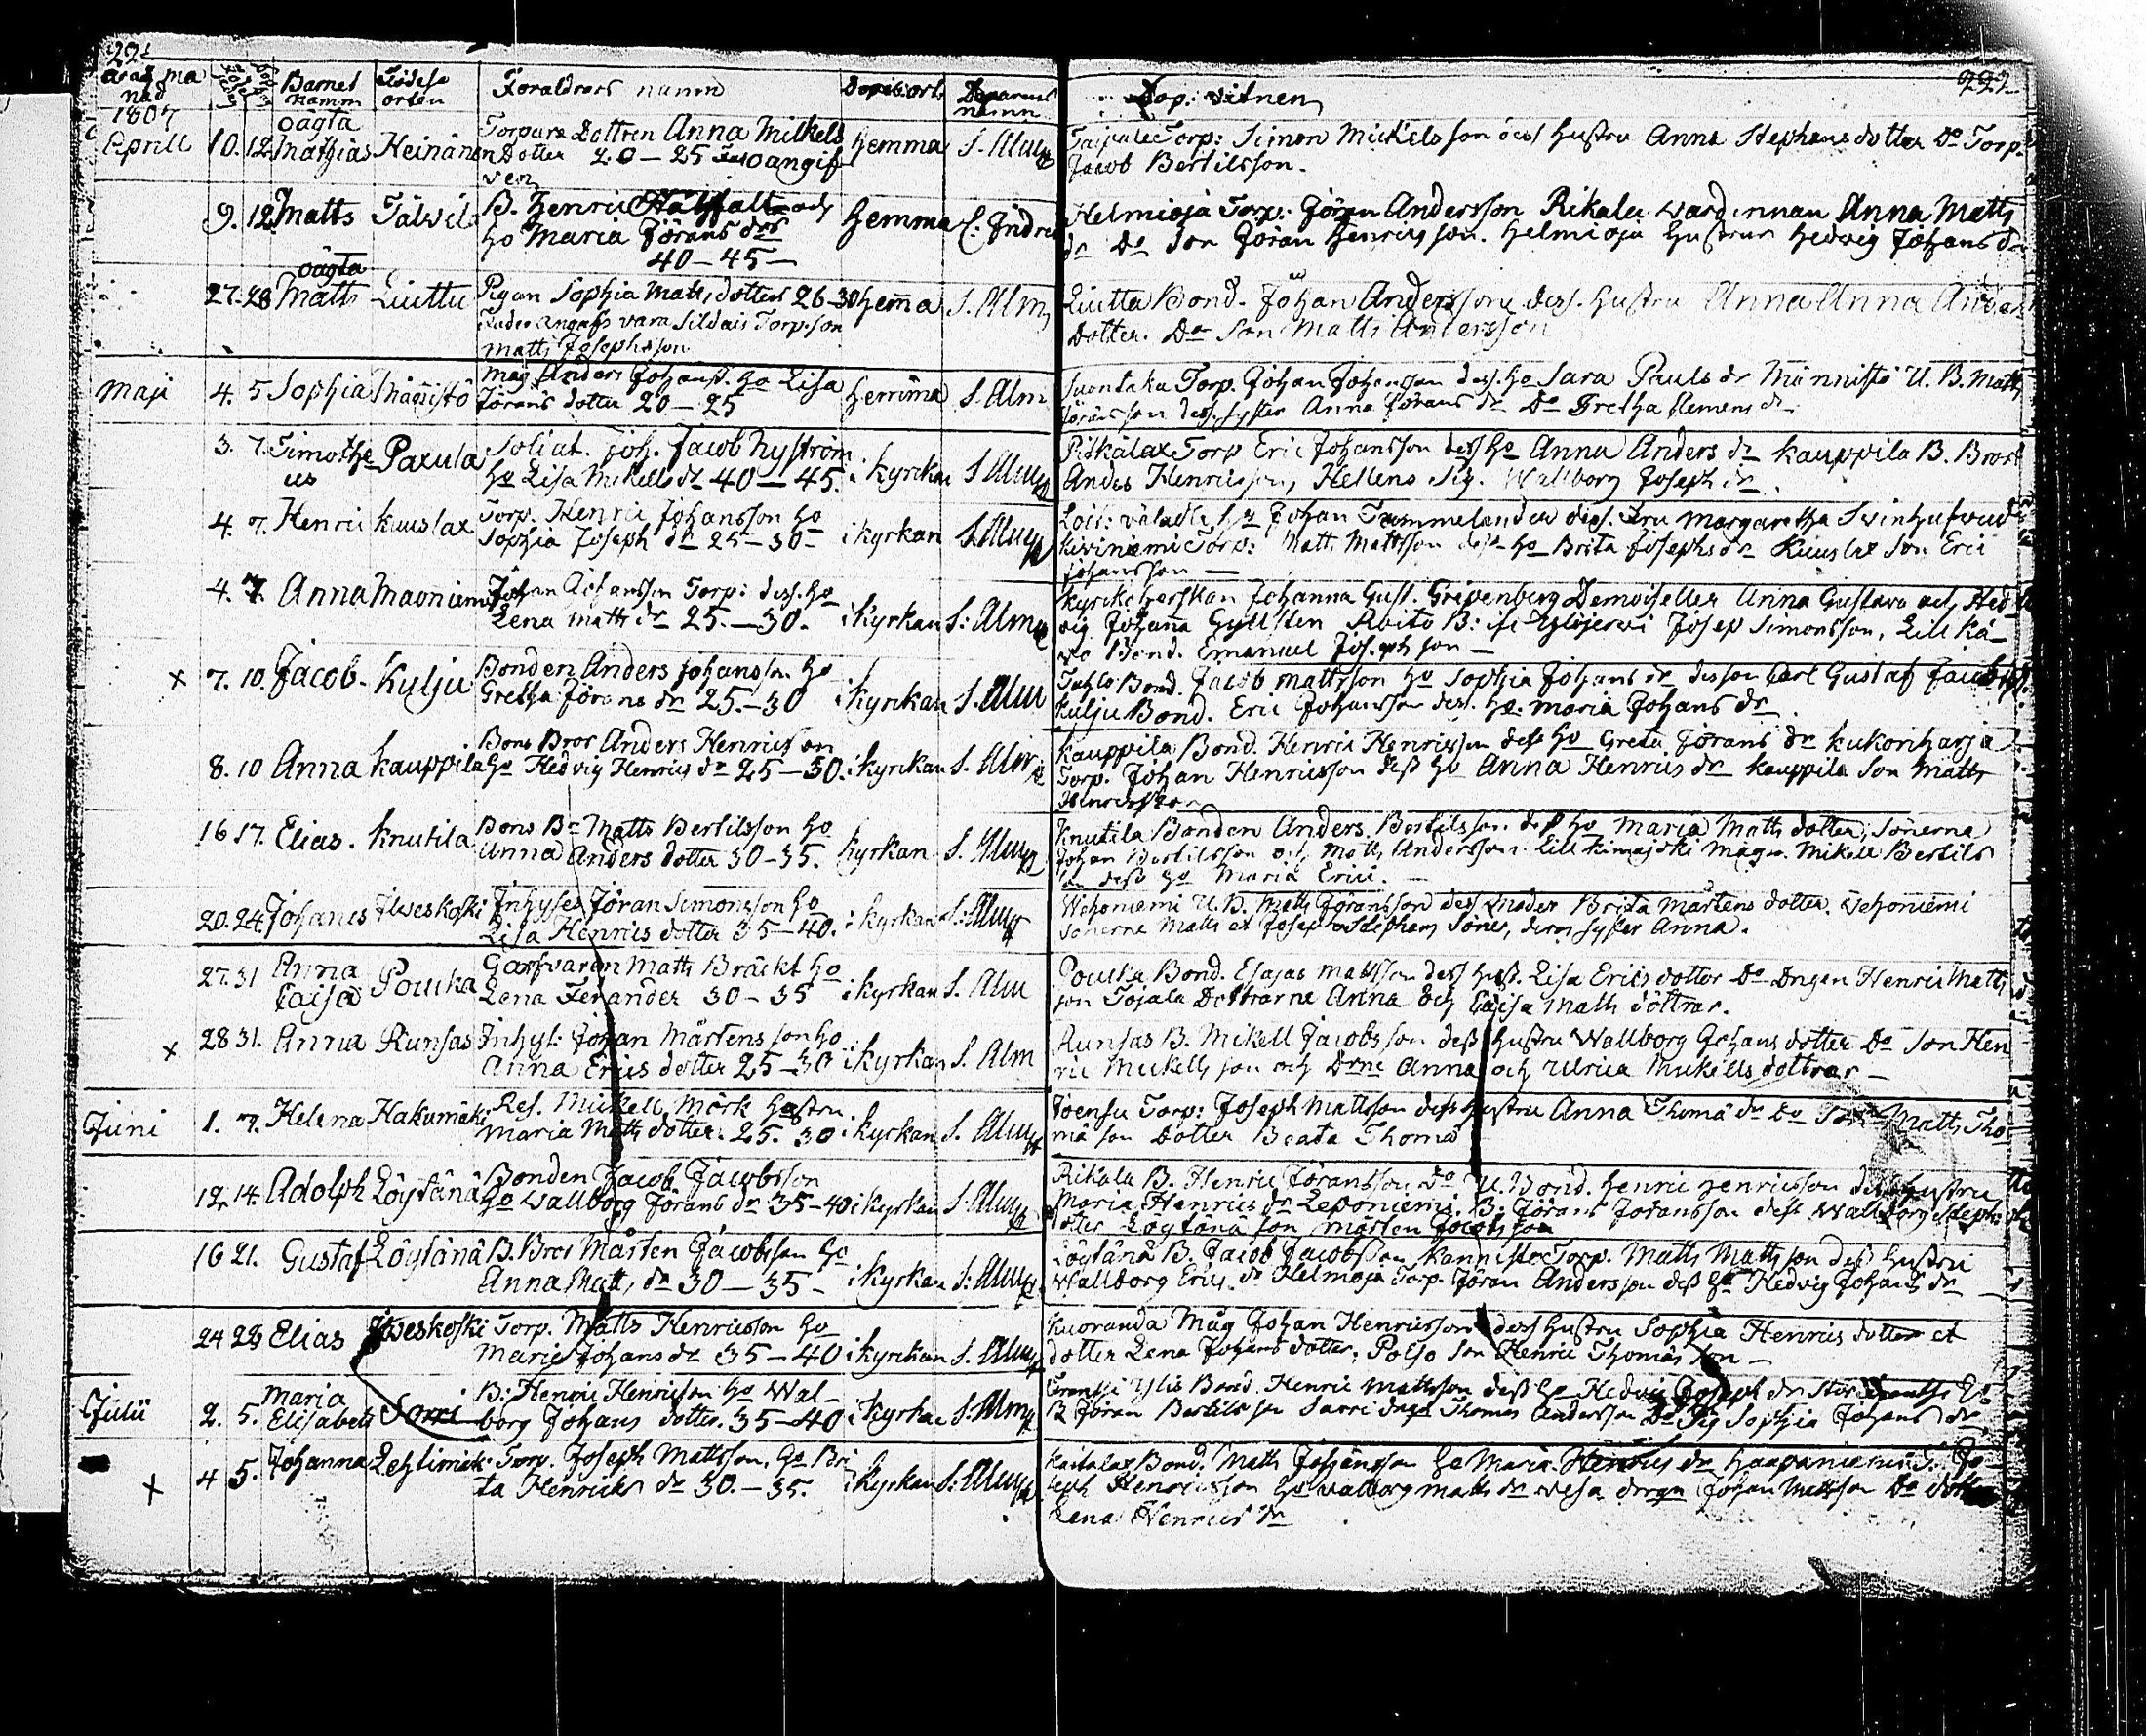 221
222
årad ma
nad
Barnets
namn
Födelse
orten
Foraldrars namn
Dopelseort
Döparens
namn
Dop: vitnen
1807
Aprill 10. 12 oägta
Mathias Heinänen Torpare Dottren Anna Mikels
Dotter 20 – 25 oangif
ven
hemma S. Alm
Torp: Simon Mickelsson des hustru Anna Stephens dotter Do Torp.
Jacob Bertilsson.
9. 12 Matts Tälvilä B. Henric och
ho Maria Jörans dr
40 – 45 –
hemma
Helmioja Torp: Jöran Andersson Rikala Anna Matts
dr Do Son Jöran Henricsson. Helmioja Hustrun Hedvig Johans dr
oägta
27. 28 Matts Liuttu Pigan Sophia Matts dotter 26–30 hemma S. Alm
Fader angafs vara Torp. son
Matts Josephsson
Liutta Bond. Johan Andersson dess. hustru Anna Anna
Dotter. Do Son Matts Andersson
Maji 4. 5 Sophia Männistö Måg Anders Johans. ho Lisa
Jörans dotter 20 – 25
hemma S. Alm
Suontaka Torp. Johan Johansson des. ho Sara Pauls dr Männistö U. B. Matts
Jöransson des syster Anna Jörans dr Do Gretha Clemens dr
3. 7. Timothe
us
Paxula Soldat. Joh. Jacob Nyström
ho Lisa Mikells dr 40 – 45.
i kyrkan S Alm
Torp Eric Johansson des ho Anna Anders dr Kauppila B. Bror
Anders Henricsson, Hellens Pig. Wallborg Joseph dr
4. 7. Henric Kuuslax Torp. Henric Johansson ho
Sophia Joseph dr 25–30–
i kyrkan S. Alm
Johan Tammelander des. Fru Margaretha Svinhufvud
Kiviniemi Torp: Matts Mattsson dess ho Brita Josephs dr Kuuslax Son Eric
Johansson –
4. 7. Anna Maoniemi Johan Johansson Torp: des. ho
Lena Matts dr 25. – 30.
i kyrkan S: Alm
Kyrkoherskan Johanna Gust. Gripenberg Demoiseller Anna Gustava och Hed
vig Johanna Gyllsten B: Josep Simonsson, Lill
Bond. Emanuel Joseph son –
x 7. 10. Jacob. Kylju Bonden Anders Johansson ho
Gretha Jörans dr 25. – 30
i kyrkan S. Alm
Bond. Jacob Mattsson ho Sophia Johans dr desson Carl Gustaf Jacobs
Kulju Bond. Eric Johansson des. ho. Maria Johans dr
8. 10 Anna Kauppila Bons Bror Anders Henricsson
ho Hedvig Henrics dr 25 – 30.
i kyrkan S. Alm
Kauppila Bond. Henric Henricsson dess ho Greta Jörans dr Kukonharja
Torp. Johan Henricsson dess ho Anna Henrics dr Kauppila Son Matts
Henricsson
16 17. Elias. Knutila Bons Br Matts Bertilsson ho
Anna Anders dotter 30 – 35.
kyrkan S. Alm
Knutila Bonden Anders Bertilsson dess ho Maria Matts dotter, Sönerna
Johan Bertilsson och Matts Andersson. Lill Mågen Mikell Bertils
son dess ho Maria Erici.
20. 24. Johanes Ilveskoski Inhyses Jöran Simonsson ho
Lisa Henrics dotter 35–40.
i kyrkan S: Alm
Wehoniemi U. B. Matts Jöransson des Moder Brita Mårtens dotter. Wehoniemi
Sönerne Matts et Josep Stephans Söner, deras syster Anna.
27. 31 Anna
Caisa
Pouka Garfvaren Matts Bräckt ho
Lena Ferander 30 – 35
i kyrkan S. Alm
Pouka Bond. Esajas Mattsson des hust. Lisa Erics dotter Do Drgen Henric Matts
son Tojala Dottrarne Anna och Caisa Matts döttrar.
x 28 31. Anna Runsas Inhys: Johan Mårtensson ho
Anna Erics dotter 25 – 30
i kyrkan S. Alm
Runsas B. Mikell Jacobsson dess hustru Wallborg Johans dotter Do Son Hen
ric Mickells son och Drne Anna och Ulrica Mickells döttrar –
Juni 1. 7. Helena Hakamäki Res. Mickell Mörk hustru
Maria Matts dotter. 25. 30
i kyrkan S. Alm
Joensu Torp: Joseph Mattsson dess hustru Anna Thomä dr Do Son Matts Tho
mä son Dotter Beata Thomä
12 14. Adolph Löytänä Bonden Jacob Jacobsson
ho Wallborg Jörans dr 35–40
i kyrkan S. Alm
Rikala B. Henric Jöransson Do U. Bond. Henric Henricsson des hustru
Maria Henrics dr Leponiemi B: Jöran Jöransson dess Wallborg Steph
dotter Löytänä son Mårten Jacobsson
16 21. Gustaf Löytänä B. Bror Mårten Jacobsson ho
Anna Matts dr 30 – 35 –
i kyrkan S: Alm
Löytänä B. Jacob Jacobsson Kannisto Torp. Matts Mattsson dess hustru
Wallborg Erics dr Helmoja Torp. Jöran Andersson dess ho Hedvig Johans dr
24 28 Elias Ilveskoski Torp. Matts Henricsson ho
Maria Johans dr 35 – 40
i kyrkan S. Alm
Kuoranda Måg Johan Henricsson des hustru Sophia Henrics dotter et
dotter Lena Johans dotter, Poljo Son Henric Thomäs son –
Julii 2. 5. Maria
Elisabeth
Sarri B. Henric Henricsson ho Wal–
borg Johans dotter. 35–40
i kyrkan S. Alm
Bond. Henric Mattsson dess ho Hedvig Joseph dr
B Jöran Bertilsson Sarri drgn Thomas Andersson Do Pig Sophia Johans dr
x 4 5. Johanna Lehtimäki Torp. Joseph Mattsson, ho Bri
ta Henricks dr 30. – 35.
i kyrkan S: Alm
Kaitalax Bond. Matts Johansson ho Maria Henrics dr Haapaniemi T. Jo
seph Henricsson ho Walborg Matts dr Wesa drgn Johan Mattsson Do
Lena Henrics dr